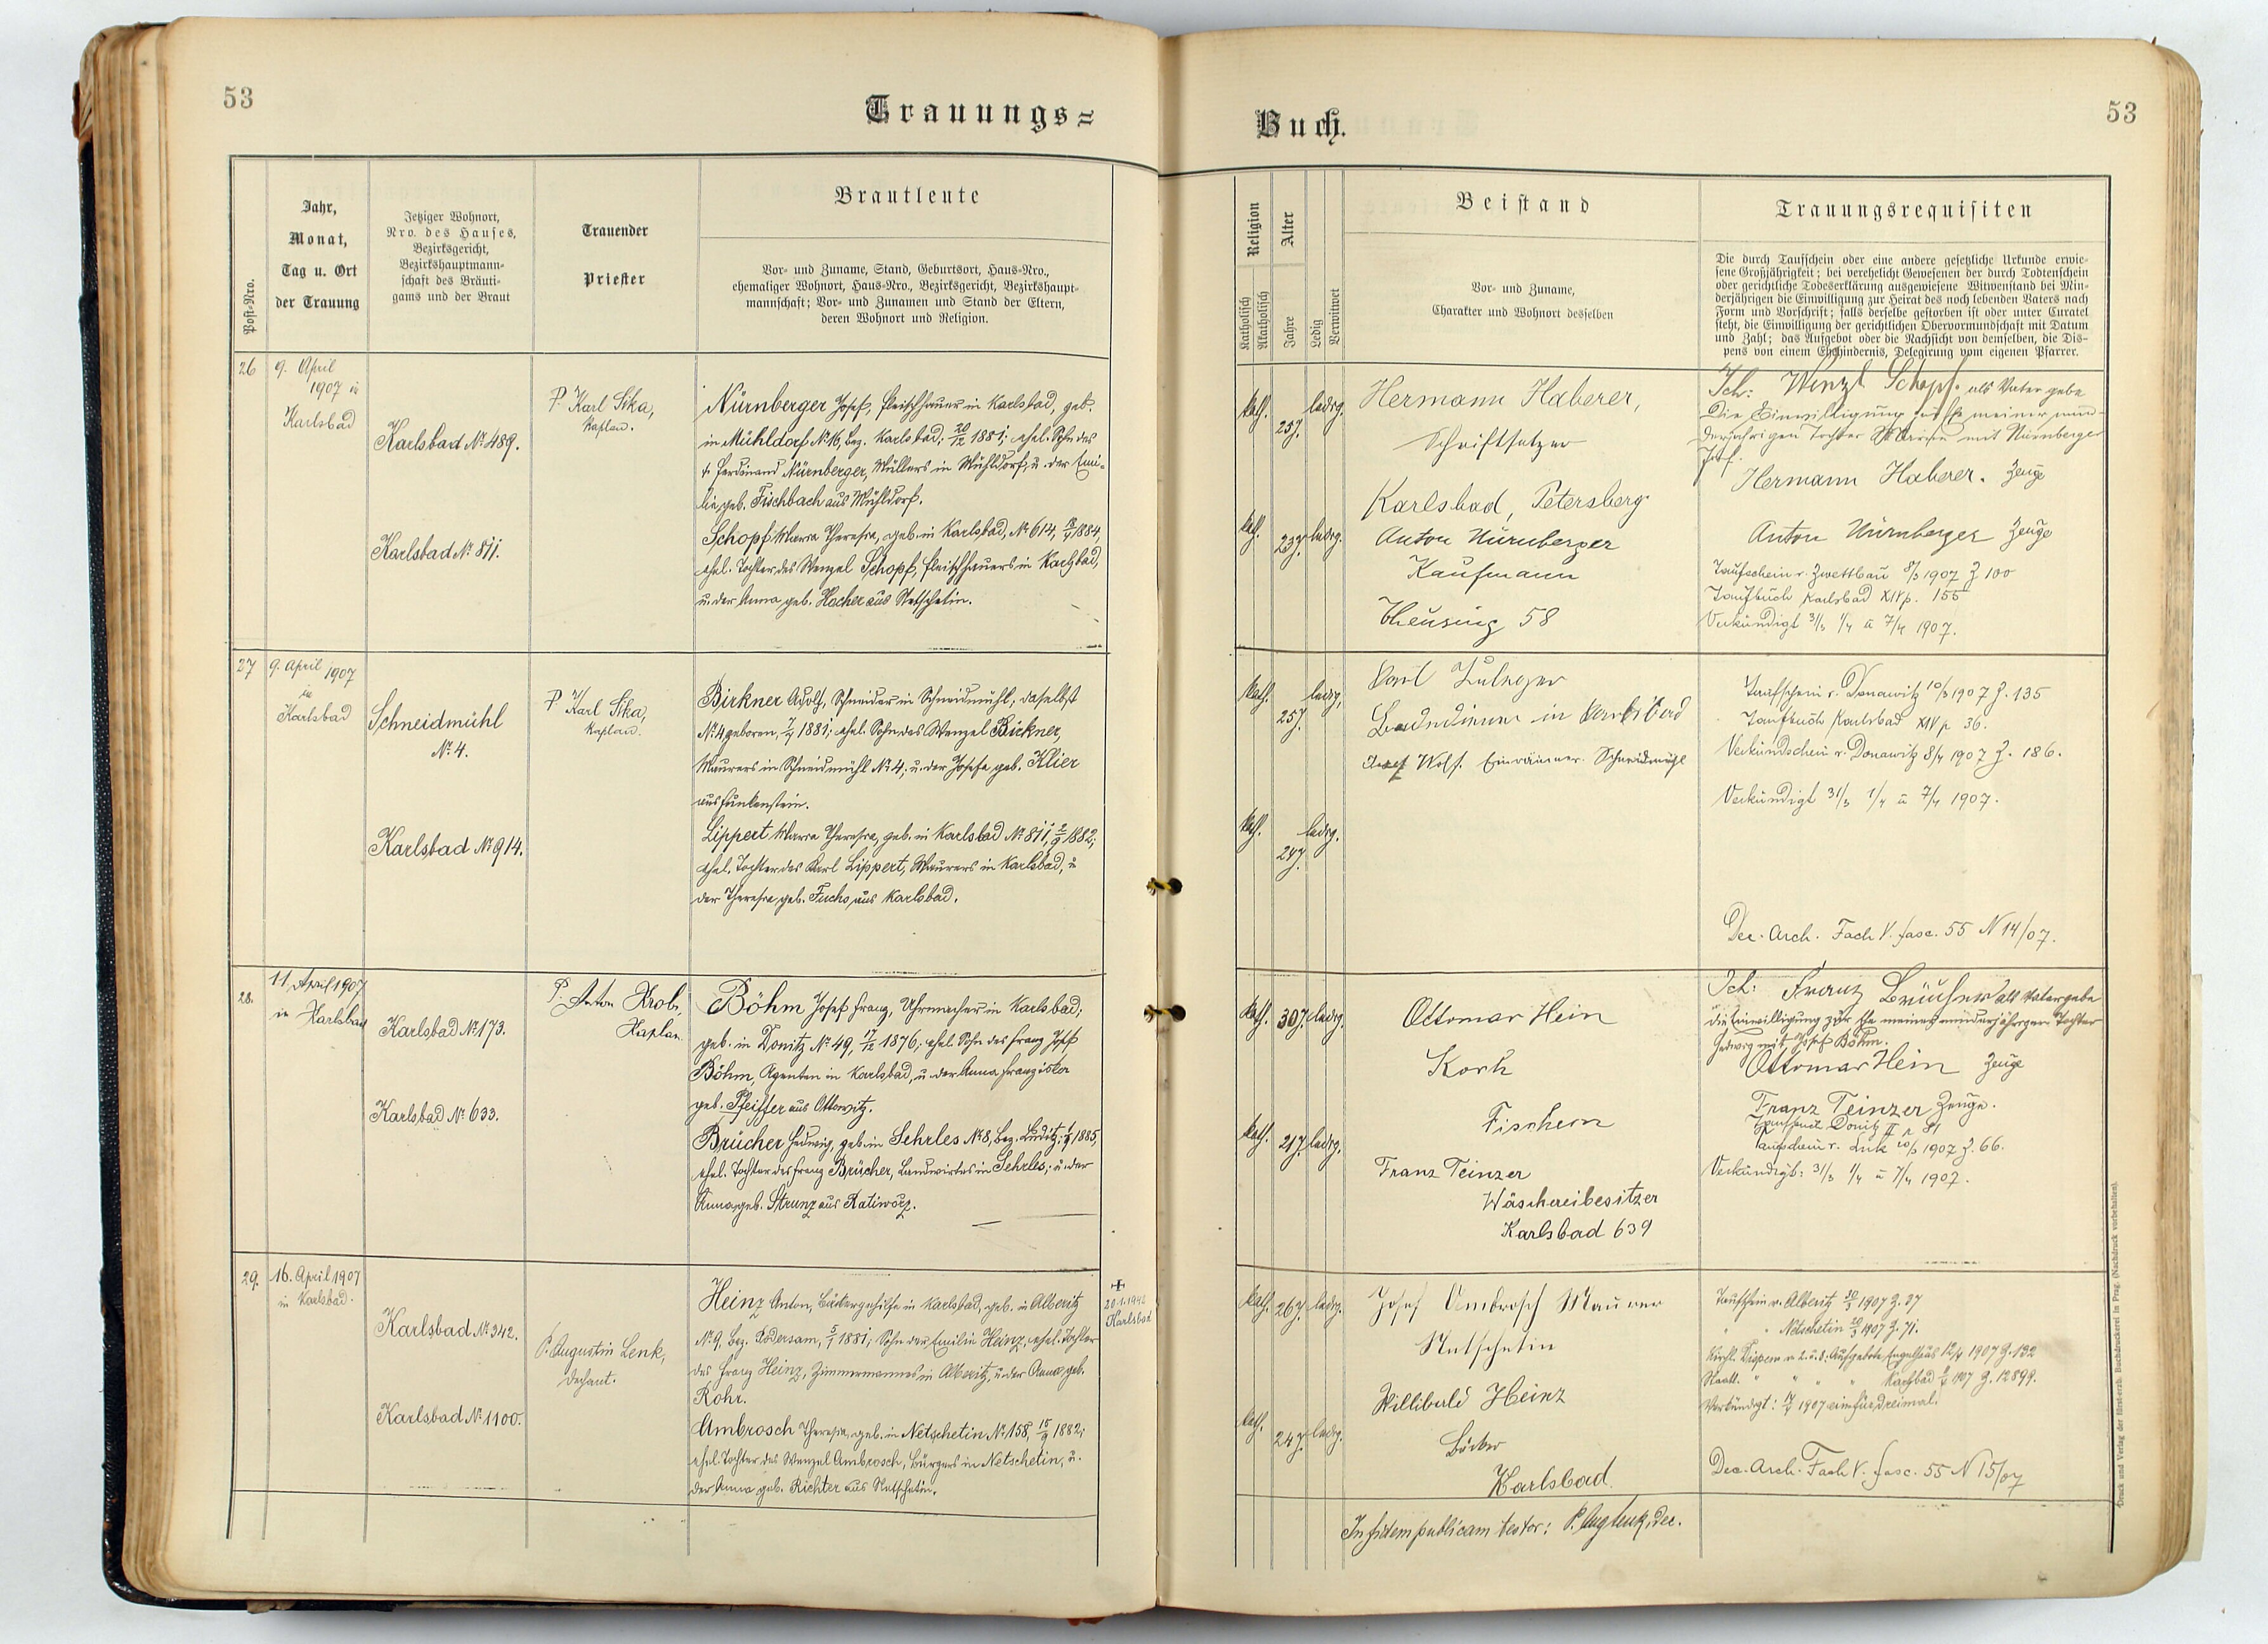 53
Trauungs=
Post-Nro.
Jahr,
Monat,
Tag u. Ort
der Trauung
Jetziger Wohnort,
Nro. des Hauses,
Bezirksgericht,
Bezirkshauptmann-
schaft des Bräuti-
gams und der Braut
Trauender
Priester
Brautleute
Vor- und Zuname, Stand, Geburtsort, Haus-Nro.,
ehemaliger Wohnort, Haus-Nro., Bezirksgericht, Bezirkshaupt-
mannschaft; Vor- und Zunamen und Stand der Eltern,
deren Wohnort und Religion.
26
9. April
1907 in
Karlsbad
Karlsbad № 489.
Karlsbad № 811.
P. Karl Sika,
Kaplan.
Nürnberger Josef, Fleischhauer in Karlsbad, geb.
in Mühldorf № 16, Bez. Karlsbad; 20/12 1881; ehel. Sohn des
† Ferdinand Nürnberger, Müllers in Mühldorf, u. der Emi-
lie, geb. Fischbach aus Mühldorf.
Schopf Maria Theresia, geb. in Karlsbad, № 614, 1884,
ehel. Tochter des Wenzel Schopf, Fleischhauers in Karlsbad,
u. der Anna geb. Hacher aus Netschetin.
27
9. April 1907
in
Karlsbad
Schneidmühl
№ 4.
Karlsbad № 914.
P. Karl Sika,
Kaplan.
Birkner Adolf, Schneider in Schneidmühl, daselbst
№ 4 geboren, 1881; ehel. Sohn des Wenzel Birkner,
Maurers in Schneidmühl № 4; u. der Josefa geb. Klier
aus Funkenstein.
Lippert Maria Theresia, geb. in Karlsbad № 811, 2/9 1882;
ehel. Tochter des Karl Lippert, Maurers in Karlsbad, u
der Theresia geb. Fuchs aus Karlsbad.
28.
11. April 1907
in Karlsbad
Karlsbad № 173.
Karlsbad № 633.
P. Anton Krob,
Kaplan.
Böhm Josef Franz, Uhrmacher in Karlsbad;
geb. in Donitz № 49, 17/12 1876; ehel. Sohn des Franz Josef
Böhm, Agenten in Karlsbad, u. der Anna Franziska
geb. Pfeiffer aus Ottowitz.
Brücher Hedwig, geb. in Sehrles № 8, Bez. Luditz; 1885,
ehel. Tochter des Franz Brücher, Landwirtes in Sehrles; u. der
Anna geb. Strunz aus Ratiworz.
29.
16. April 1907
in Karlsbad.
Karlsbad № 342.
Karlsbad № 1100.
P. Augustin Lenk,
Dechant.
Heinz Anton, Bäckergehilfe in Karlsbad, geb. in Alberitz
№ 9, Bez. Podersam, 5/1 1881; Sohn der Emilie Heinz, ehel. Tochter
des Franz Heinz, Zimmermannes in Alberitz, u. der Anna geb.
Rohr.
Ambrosch Theresia, geb. in Netschetin № 158, 15/9 1882;
ehel. Tochter des Wenzel Ambrosch, Bürgers in Netschetin, u.
der Anna geb. Richter aus Netschetin.
+
Karlsbad
Buch.
53
Religion
Katholisch
Akatholisch
Alter
Jahre
Ledig
Verwitwet
Beistand
Vor- und Zuname,
Charakter und Wohnort desselben
Trauungsrequisiten
Die durch Taufschein oder eine andere gesetzliche Urkunde erwie-
sene Großjährigkeit; bei verehelicht Gewesenen der durch Todtenschein
oder gerichtliche Todeserklärung ausgewiesene Witwenstand bei Min-
derjährigen die Einwilligung zur Heirat des noch lebenden Vaters nach
Form und Vorschrift; falls derselbe gestorben ist oder unter Curatel
steht, die Einwilligung der gerichtlichen Obervormundschaft mit Datum
und Zahl; das Aufgebot oder die Nachsicht von demselben, die Dis-
pens von einem Ehehindernis, Delegirung vom eigenen Pfarrer.
kath.
25 J.
ledig.
kath.
23 J.
ledig.
Hermann Haberer,
Schriftsetzer
Karlsbad, Petersberg
Anton Nürnberger
Kaufmann
Theusing 58
Ich: Wenzl Schopf als Vater gebe
Die Einwilligung zur Ehe meiner min-
derjährigen Tochter Marie mit Nürnberger
Josef.
Hermann Haberer. Zeuge
Anton Nürnberger Zeuge
Taufschein v. Zwettbau 8/3 1907 Z 100
Taufbuch Karlsbad XIV p. 155
Verkündigt 31/3 1/4 u 7/4 1907.
kath.
25 J.
ledig,
kath.
24 J.
ledig.
Karl
in Karlsbad
Josef Wolf. Einräumer Schneidmühl
Taufschein v. Donawitz 10/3 1907 Z. 135
Taufbuch Karlsbad XIV p 36.
Verkündschein v. Donawitz 8/4 1907 Z. 186.
Verkündigt 31/3 1/4 u 7/4 1907.
Dec. Arch. Fach V. fasc. 55 N 14/07.
kath.
30 J.
ledig.
kath.
21 J.
ledig.
Ottomar Hein
Koch
Fischern
Franz Teinzer
Wäschereibesitzer
Karlsbad 639
Ich: Franz Brücher als Vater gebe
die Einwilligung zur Ehe meiner minderjährigen Tochter
Hedwig mit Josef Böhm.
Ottomar Hein Zeuge
Franz Teinzer Zeuge.
Donitz II p 81
Taufschein v. Luk 20/3 1907 Z. 66.
Verkündigt: 31/3 1/4 u 7/4 1907.
kath.
26 J.
ledig.
kath.
24 J.
ledig.
Josef Ambrosch Maurer
Netschetin
Willibald Heinz
Bäcker
Karlsbad.
Taufschein v. Alberitz 20/3 1907 Z. 27
" " Netschetin 20/3 1907 Z. 71.
Kirchl. Dispens v. 2. u. 3. Aufgebote Engelhaus 12/4 1907 Z. 132
Staatl. " " " " Karlsbad 1907 Z. 12899.
Verkündigt: 14/4 1907 ein für dreimal.
Dec. Arch. Fach V. fasc. 55 N 15/07
In fidem publicam testor: P. Aug Lenk, Dec.
Druck und Verlag der fürst-erzb. Buchdruckerei in Prag. (Nachdruck vorbehalten).